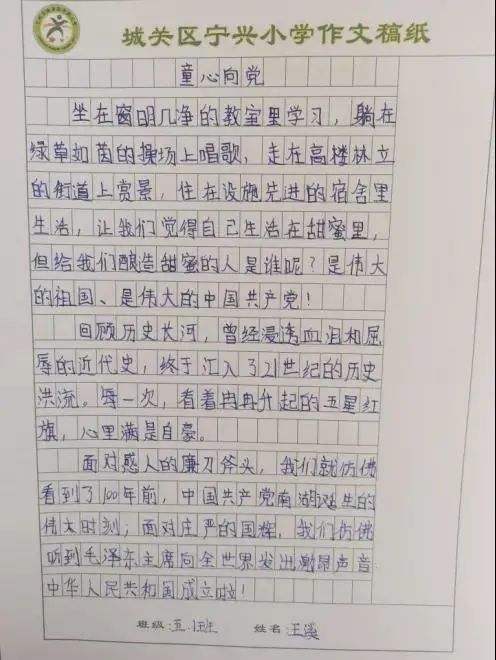 城关区宁兴小学作文稿纸
童心向党
坐在窗明几净的教室里学习，躺在
绿草如茵的操场上唱歌，走在高楼林立
的街道上赏景，住在设施先进的宿舍里
生活，让我们觉得自己生活在甜蜜里，
但给我们酿造甜蜜的人是谁呢？是伟大
的祖国、是伟大的中国共产党！
回顾历史长河，曾经浸透血泪和屈
辱的近代史，终于汇入了21世纪的历史
洪流。每一次，看着冉冉升起的五星红
旗，心里满是自豪。
面对感人的廉刀斧头，我们就仿佛
看到了100年前，中国共产党南湖诞生的
伟大时刻；面对庄严的国辉，我们仿佛
听到毛泽东主席向全世界发出激昂声音
中华人民共和国成立啦！
班级：五.1班 姓名：王溪